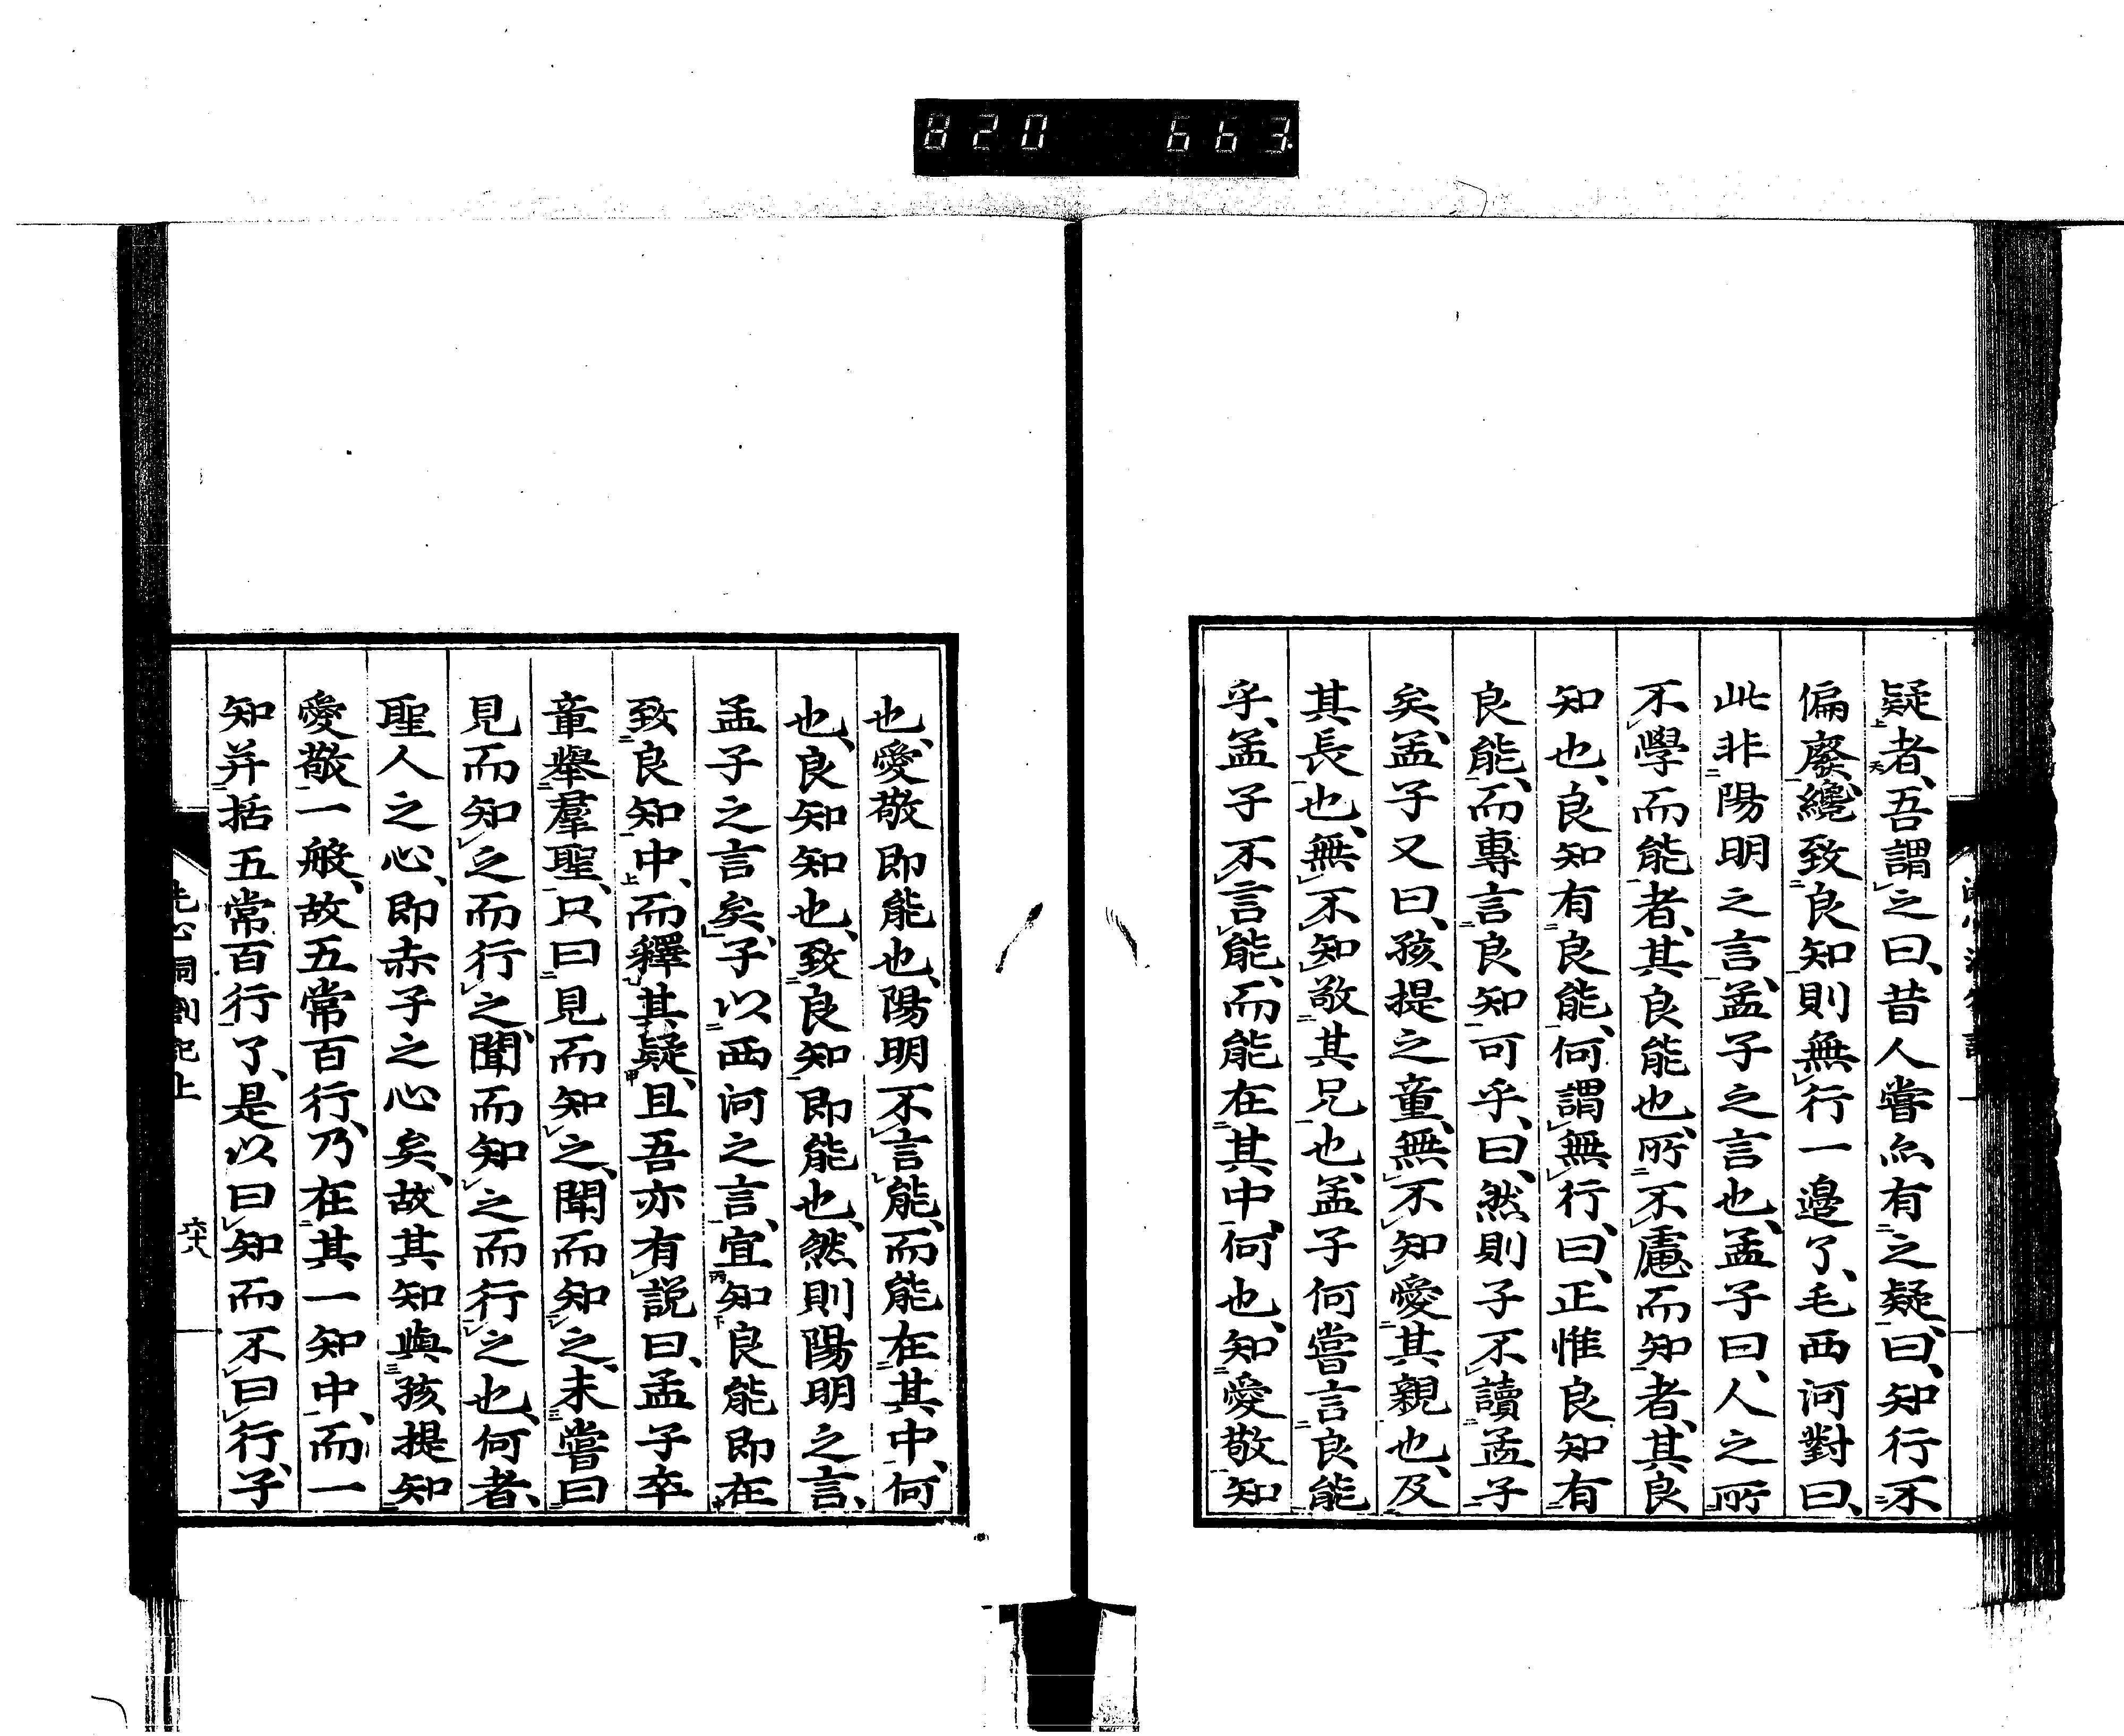 820 663.
疑者、吾謂之曰、昔人嘗亦有之疑、曰、知行不
偏廢、纔致良知則無行一邊了、毛西河對曰、
此非陽明之言、孟子之言也、孟子曰、人之所
不學而能者、其良能也、所不慮而知者、其良
知也、良知有良能、何謂無行、曰、正惟良知有
良能、而專言良知可乎、曰、然則子不讀孟子
矣、孟子又曰、孩提之童、無不知愛其親也、及
其長也、無不知敬其兄也、孟子何嘗言良能
乎、孟子不言能、而能在其中、何也、知愛敬知
也、愛敬即能也、陽明不言能、而能在其中、何
也、良知知也、致良知即能也、然則陽明之言、
孟子之言矣、子以西河之言、宜知良能即在
致良知中、而釋其疑、且吾亦有説曰、孟子卒
章舉羣聖、只曰見而知之、聞而知之、未嘗曰
見而知之而行之、聞而知之而行之也、何者、
聖人之心、即赤子之心矣、故其知與孩提知
愛敬一般、故五常百行、乃在其一知中、而一
知并括五常百行了、是以曰知而不曰行、子
洗心洞劄記上 六十八